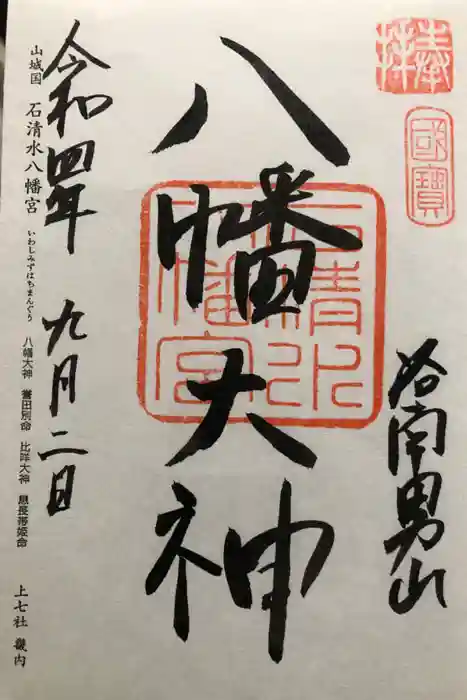 奉拝
國寶
洛南男山
八幡大神
石清水
八幡宮
令和四年 九月二日
山城国 石清水八幡宮 いわしみずはちまんぐう 八幡大神 誉田別命 比咩大神 息長帯姫命 上七社 畿内